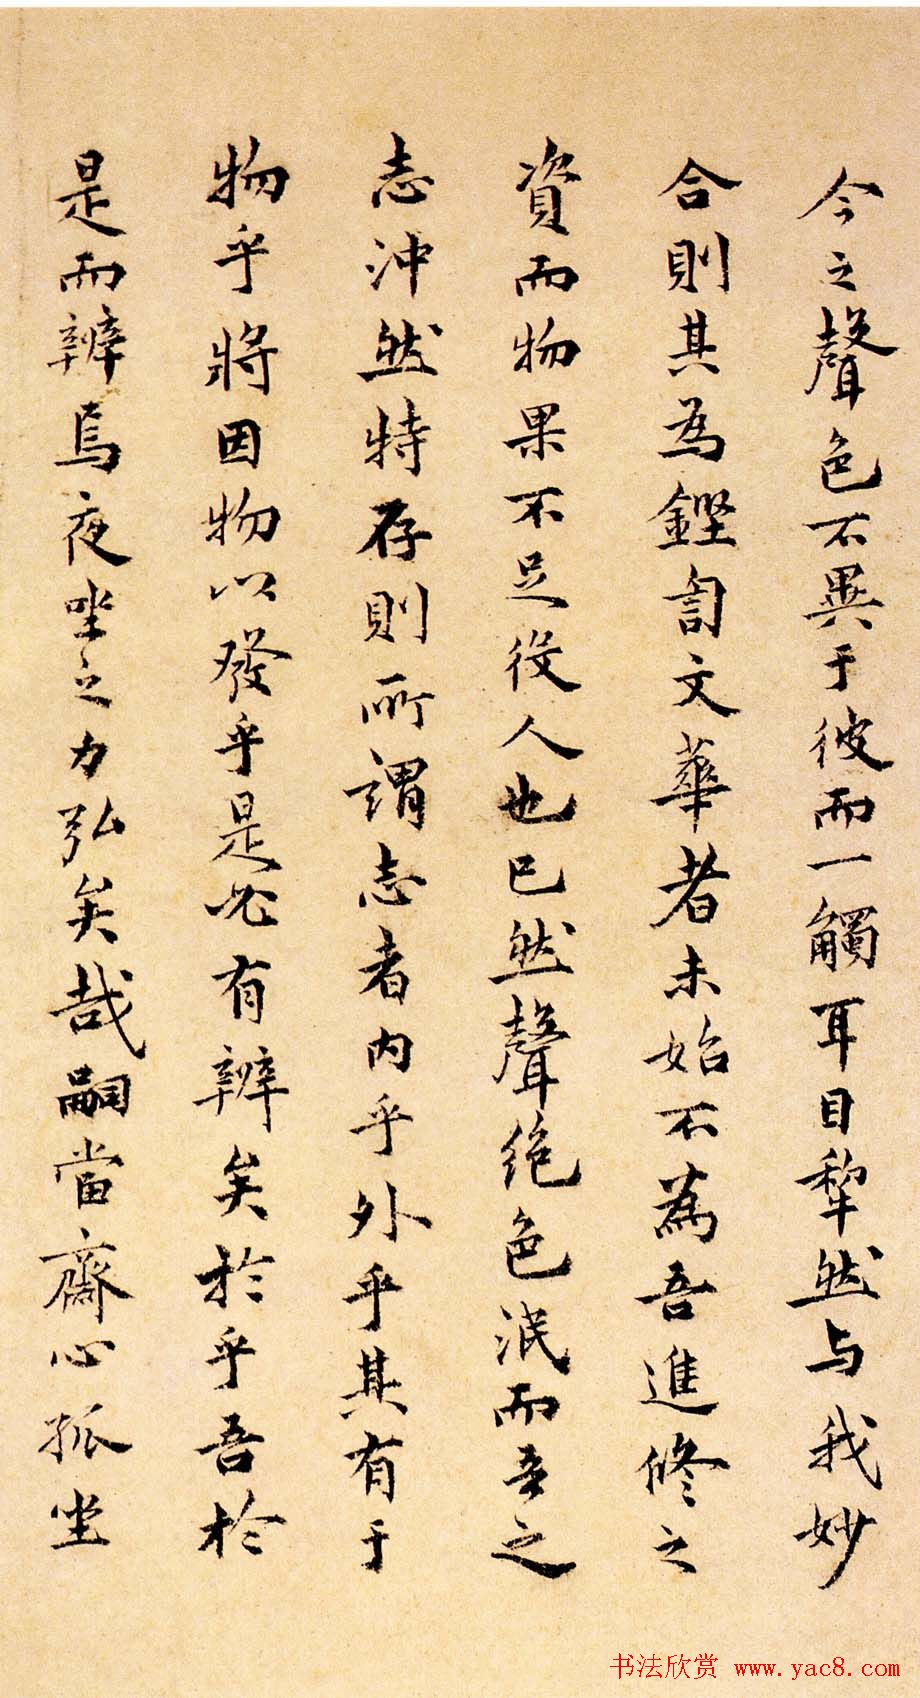 今之聲色不異于彼而一觸耳目犂然与我妙
合則其為鏗訇文華者未始不為吾進修之
資而物果不足役人也已然聲絶色泯而吾之
志沖然特存則所謂志者内乎外乎其有于
物乎將因物以發乎是必有辨矣於乎吾於
是而辨焉夜坐之力弘矣哉嗣當齋心孤坐
书法欣赏 www.yac8.com